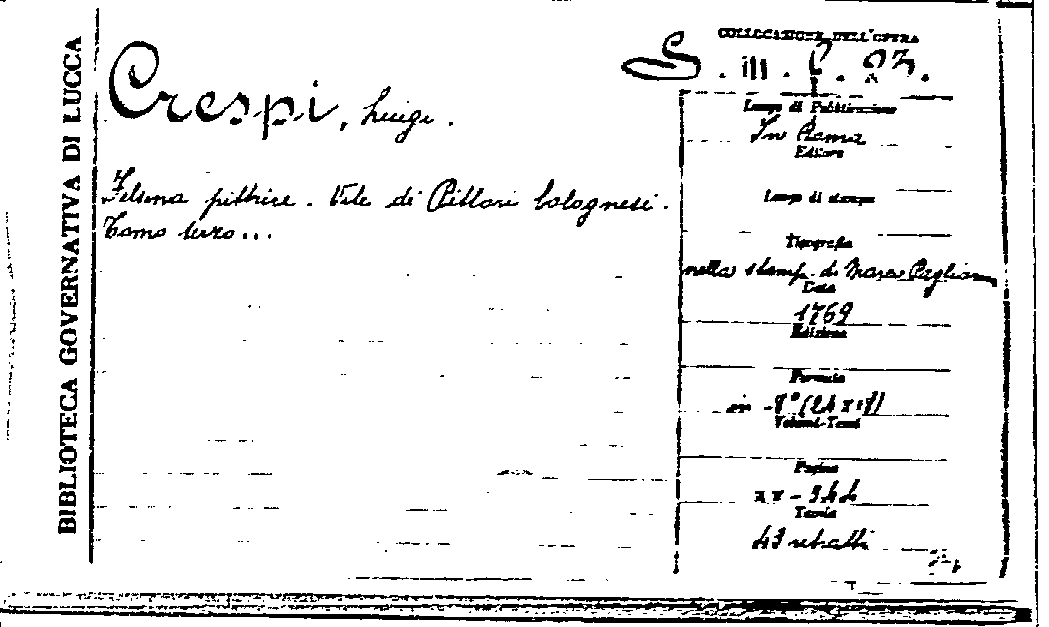 BIBLIOTECA GOVERNATIVA DI LUCCA
COLLOCAZIONE DELL'OPERA
S. III. F. 23.
Crespi, Luigi.
Felsina pittrice. Vite di Pittori bolognesi.
Tomo terzo...
Luogo di Pubblicazione
In Roma
Editore
Luogo di stampa
Tipografia
nella stamp. di Marco Pagliarini
Data
1769
Edizione
Formato
in -8° (24 x 18)
Volumi-Tomi
Pagine
xx - 344
Tavole
43 ritratti